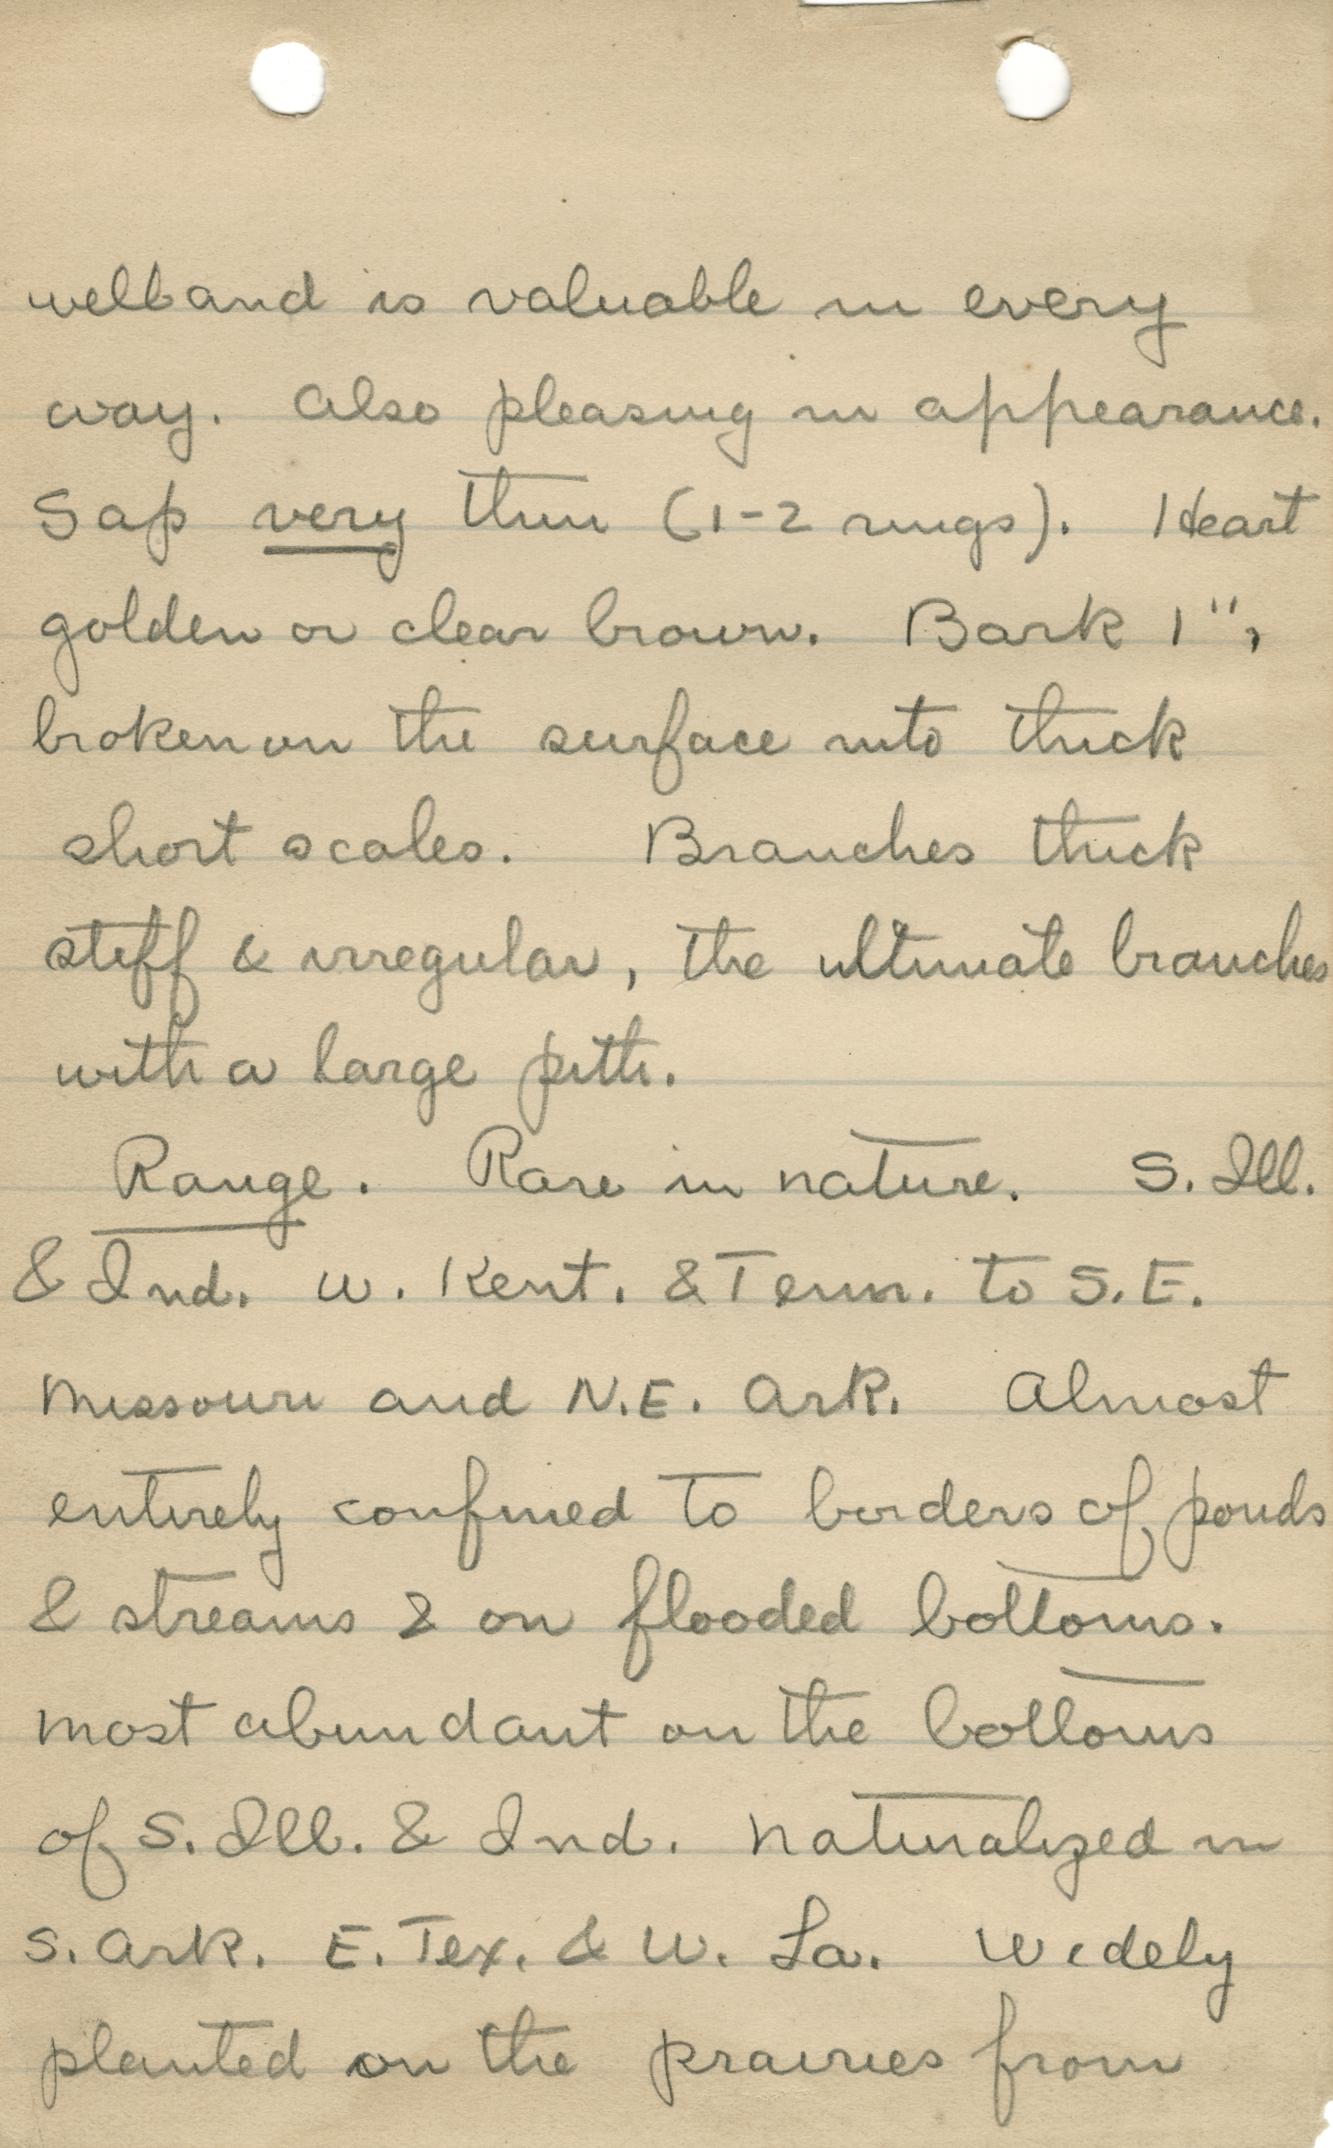 well and is valuable in every
way. Also pleasing in appearance.
Sap very thin (1-2 rings). Heart
golden or clear brown. Bark 1",
broken on the surface into thick
short scales. Branches thick
stiff & irregular, the ultimate branches
with a large pith.
Range. Rare in nature. S. Ill.
& Ind. W. Kent. & Tenn. to S.E.
Missouri and N.E. Ark. Almost
entirely confined to borders of ponds
& streams & on flooded bottoms.
Most abundant on the bottoms
of S. Ill. & Ind. Naturalized in
S. Ark. E. Tex. & W. La. Widely
planted on the prairies from